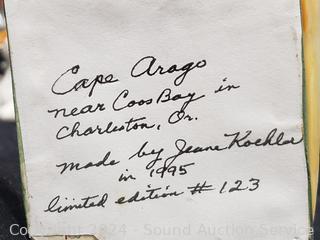 Cape Arago
near Coos Bay in
Charleston, Or.
made by Jeane Koehler
in 1995
limited edition # 123
Copyright 2024 - Sound Auction Service